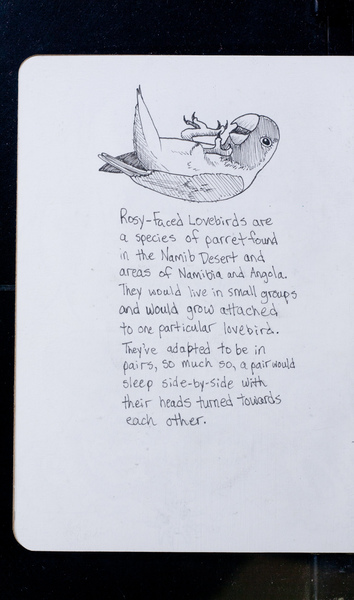 Rosy-Faced Lovebirds are
a species of parrot found
in the Namib Desert and
areas of Namibia and Angola.
They would live in small groups
and would grow attached
to one particular lovebird.
They've adapted to be in
pairs, so much so, a pair would
sleep side-by-side with
their heads turned towards
each other.